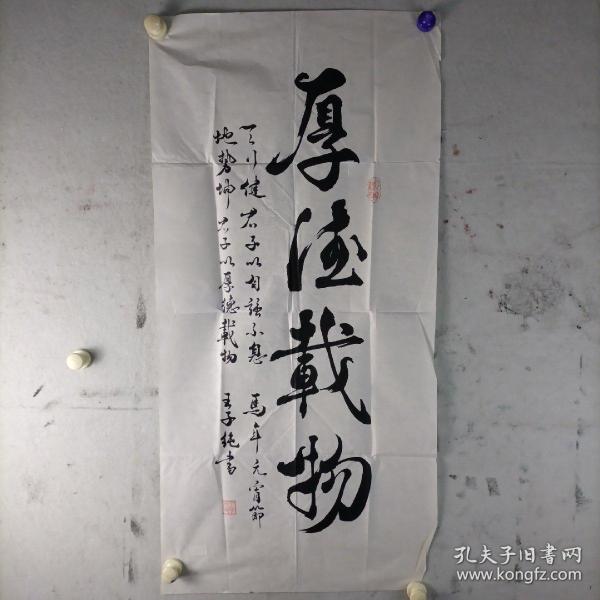 厚德載物
天行健 君子以自強不息 馬年元宵節
地勢坤 君子以厚德載物 王子純書
孔夫子旧书网
www.kongfz.com